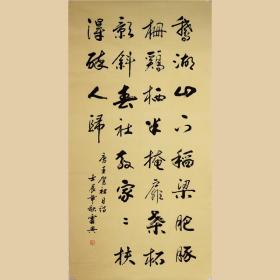 鵝湖山下稻粱肥豚
柵鷄栖半掩扉桑柘
影斜春社散家々扶
得醉人歸
唐王駕社日詩
壬辰年秋